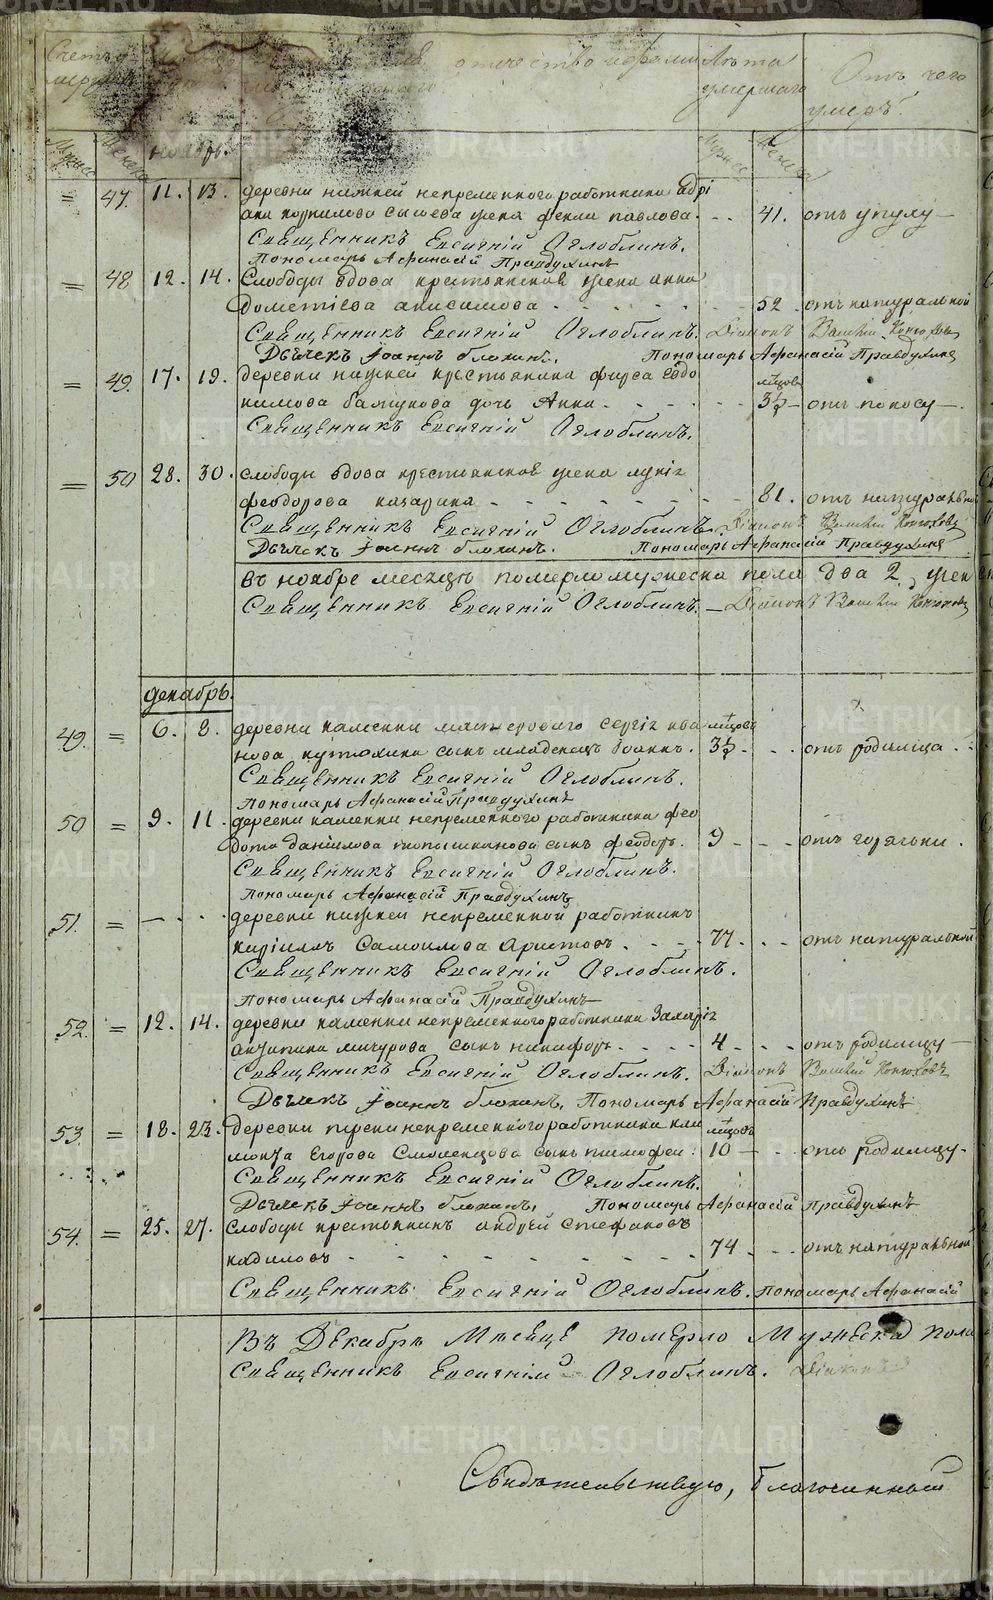 отчество и фамилия
Лѣта умершаго
Отъ чего умеръ?
ноябрь.
47. 11. 13. деревни нижней непременного работника
жена фекла павлова. 41. отъ
Священникъ Евсигнїй Оглоблинъ.
Пономарь Афанасїй Правдухинъ
48 12. 14. Слободы вдова крестьянская жена анна
Дометїева анисимова 52. отъ натуральной
Священникъ Евсигнїй Оглоблинъ. Дїаконъ Василїй Конюховъ
Дьячекъ Іоаннъ блохинъ. Пономарь Афанасїй Правдухинъ
49. 17. 19. деревни нижней крестьянина фирса евдо
кимова дочь Анна 3½ мѣсцовъ отъ поносу
Священникъ Евсигнїй Оглоблинъ.
50 28. 30. слободы вдова крестьянская жена
феодорова 81. отъ натуральной
Священникъ Евсигнїй Оглоблинъ. Дїаконъ Василїй Конюховъ
Дьячекъ Іоаннъ блохинъ. Пономарь Афанасїй Правдухинъ
въ ноябре месяцѣ померло мужеска пола два 2, жен
Священникъ Евсигнїй Оглоблинъ. Дїаконъ Василїй Конюховъ
декабрь.
49. 6. 8. деревни каменки мастероваго сергїя ива
нова сынъ младенецъ Іоаннъ. 3½ мѣсцовъ отъ родимца
Священникъ Евсигнїй Оглоблинъ.
Пономарь Афанасїй Правдухинъ
50 9. 11. деревни каменки непременного работника фео
дота данїлова сынъ феодоръ. 9 отъ горячьки.
Священникъ Евсигнїй Оглоблинъ.
Пономарь Афанасїй Правдухинъ
51. деревни нижней непременной работникъ
кирїллъ Самоилова Аристовъ. 77 отъ натуральной
Священникъ Евсигнїй Оглоблинъ.
Пономарь Афанасїй Правдухинъ
52. 12. 14. деревни каменки непременного работника Захарїя
мичурова сынъ никифоръ. 4 отъ родимцу
Священникъ Евсигнїй Оглоблинъ. Дїаконъ Василїй Конюховъ
Дьячекъ Іоаннъ блохинъ. Пономарь Афанасїй Правдухинъ
53. 18. 23. Деревни непременного работника кли
Егорова сынъ тимофей. 10 мѣсцовъ отъ родимцу.
Священникъ Евсигнїй Оглоблинъ.
Дьячекъ Іоаннъ блохинъ. Пономарь Афанасїй Правдухинъ
54. 25. 27. Слободы крестьянинъ андрей Стефановъ
кадиловъ 74 отъ натуральной
Священникъ Евсигнїй Оглоблинъ. пономарь Афанасїй
Въ Декабрѣ Мѣсяце померло Мужеска пола
Священникъ Евсигнїй Оглоблинъ. Дїаконъ
Свидѣтельствую, Благочинный
METRIKI.GASO-URAL.RU